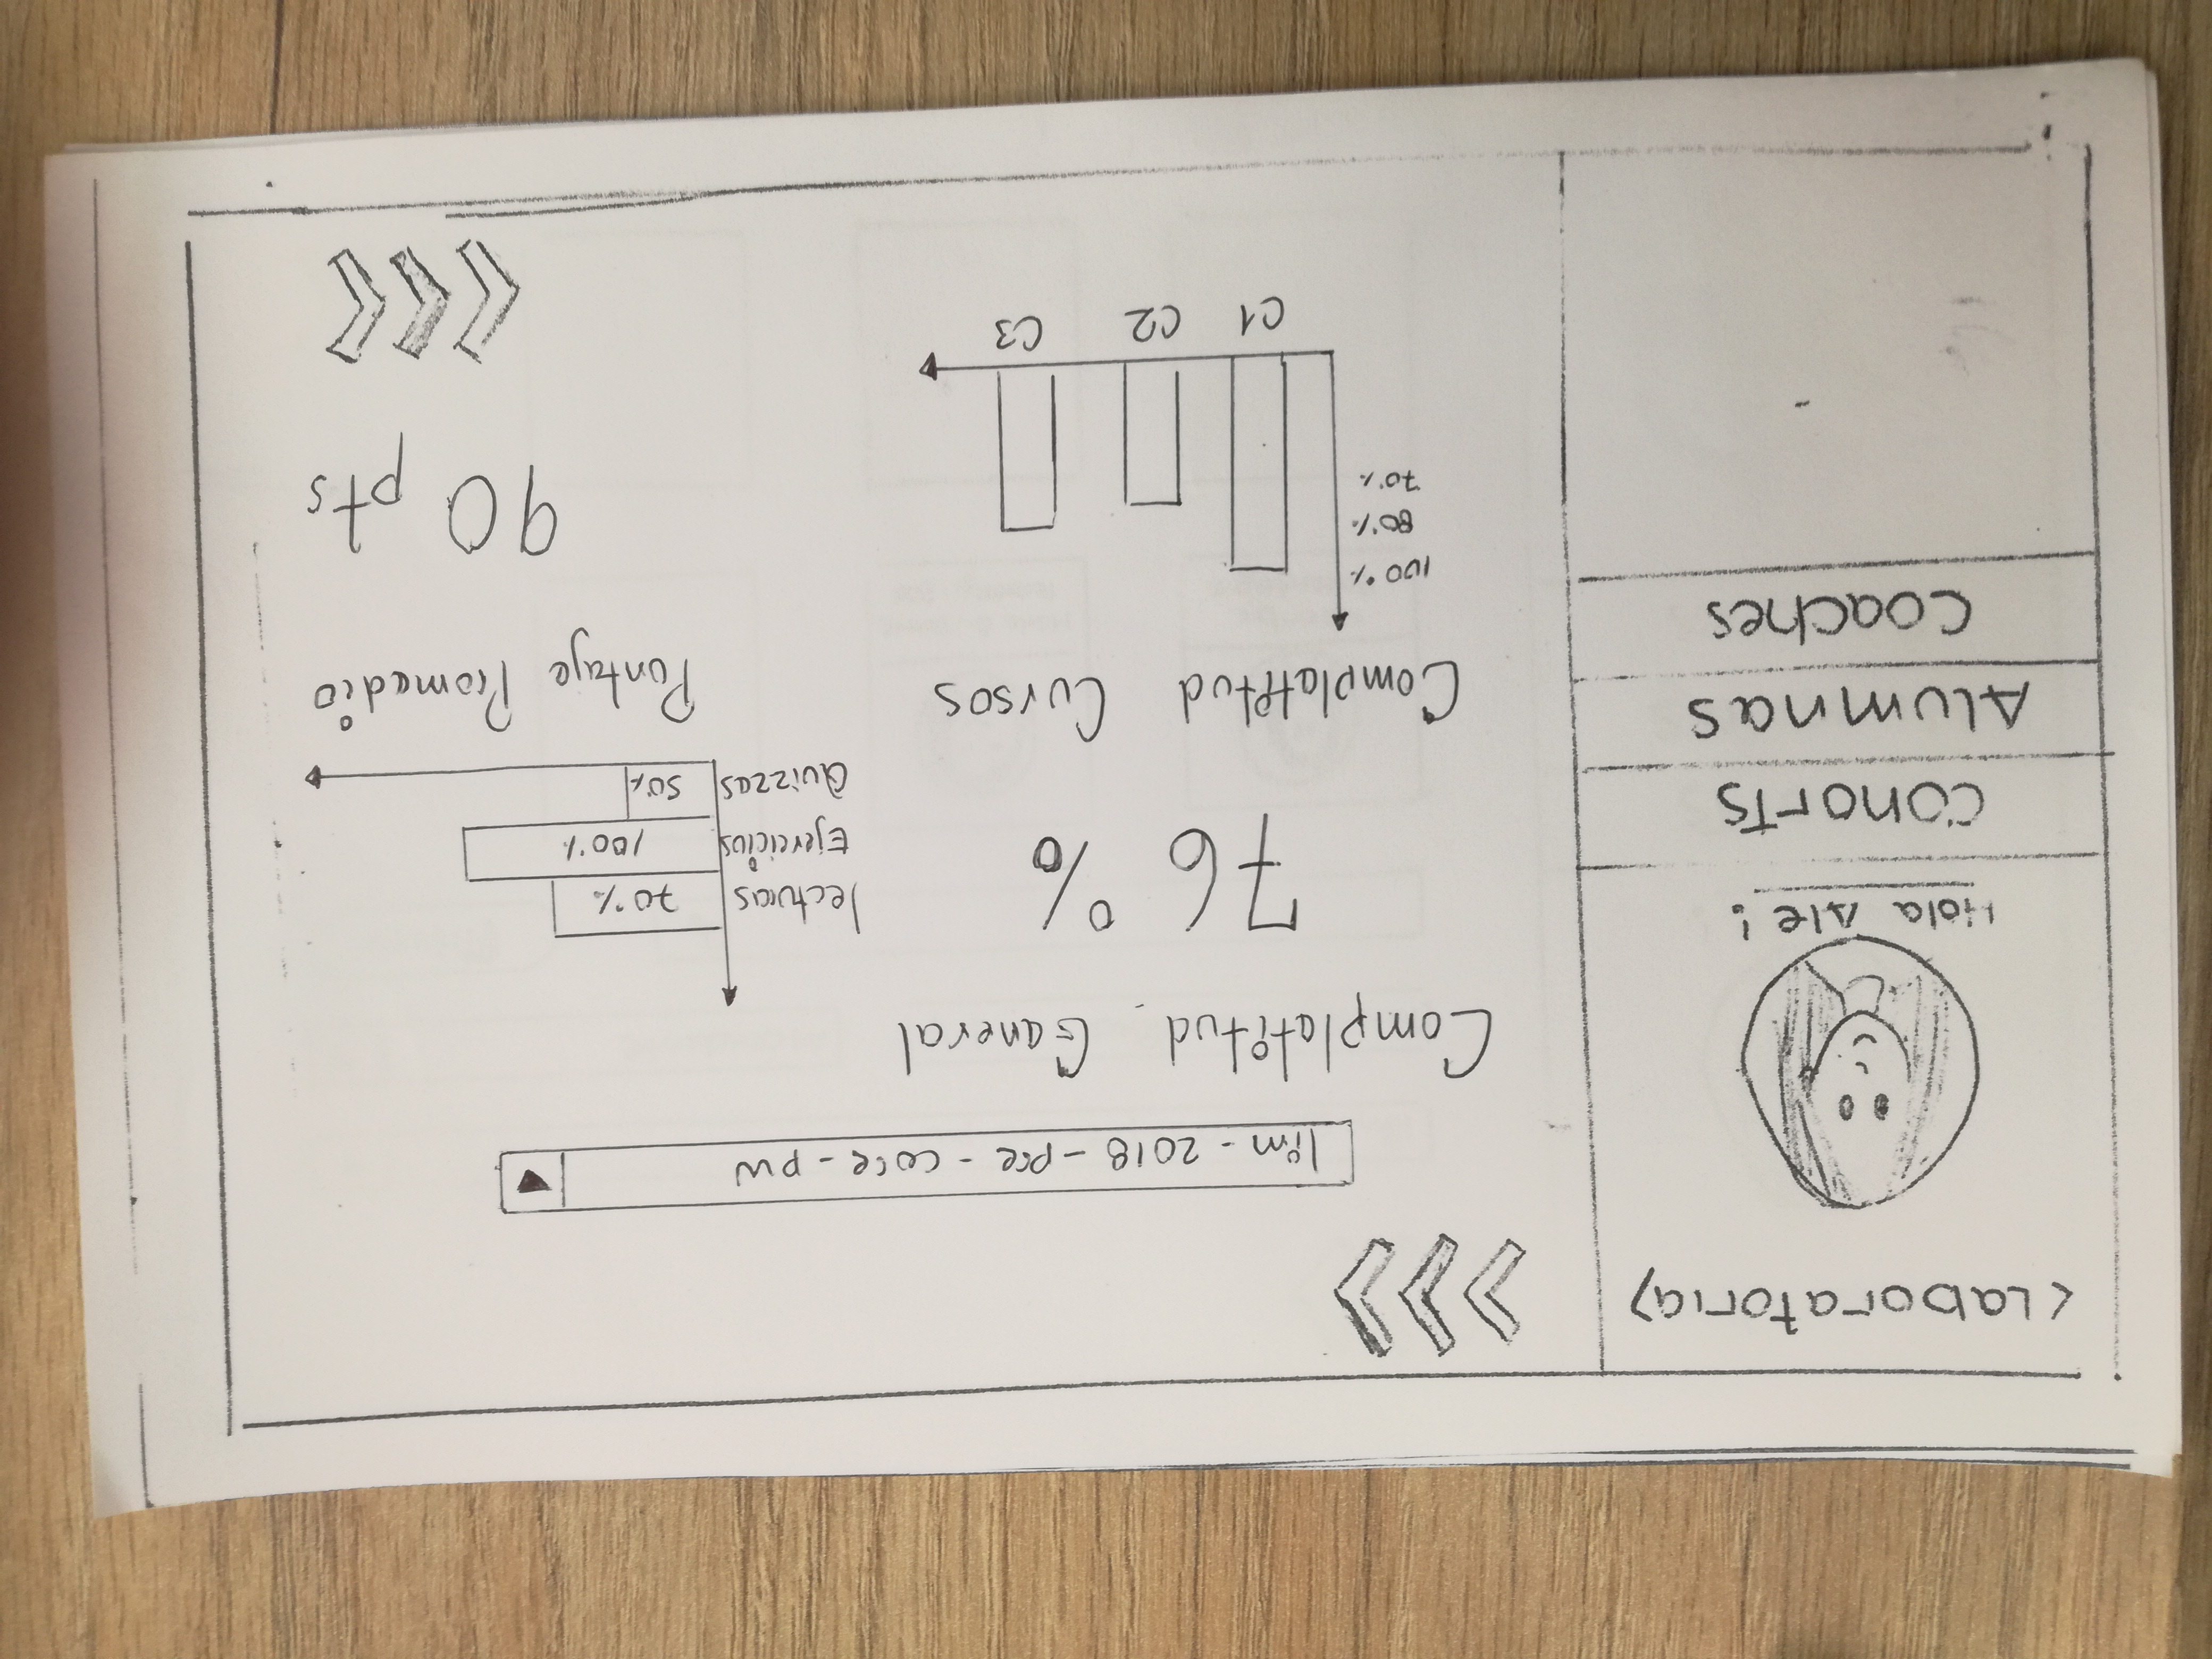 <Laboratoria>
Hola Ale!
Cohorts
Alumnas
Coaches
lim - 2018 - pre - core - pw
Completitud General
76 %
lecturas 70%
Ejercicios 100%
Quizzes 50%
Completitud Cursos
100 %
80%
70%
C1 C2 C3
Puntaje Promedio
90 pts